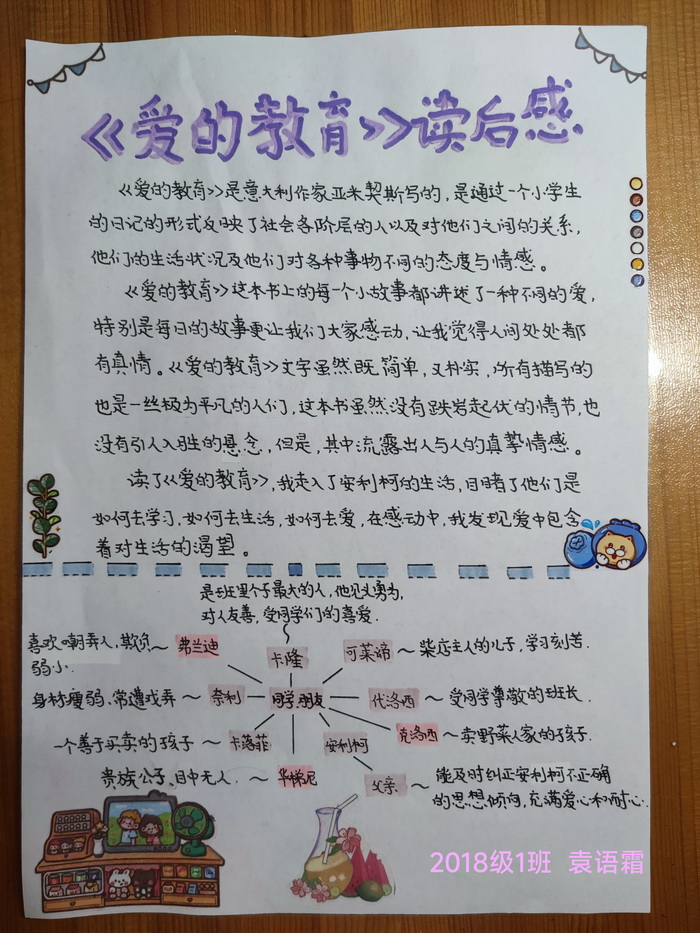 《爱的教育》读后感
《爱的教育》是意大利作家亚米契斯写的，是通过一个小学生
的日记的形式反映了社会各阶层的人以及对他们之间的关系，
他们的生活状况及他们对各种事物不同的态度与情感。
《爱的教育》这本书上的每一个小故事都讲述了一种不同的爱，
特别是每日的故事更让我们大家感动，让我觉得人间处处都
有真情。《爱的教育》文字虽然既简单，又朴实，所有描写的
也是一些极为平凡的人们，这本书虽然没有跌宕起伏的情节，也
没有引人入胜的悬念，但是，其中流露出人与人的真挚情感。
读了《爱的教育》，我走入了安利柯的生活，目睹了他们是
如何去学习，如何去生活，如何去爱，在感动中，我发现爱中包含
着对生活的渴望。
是班里个子最大的人，他见义勇为，
对人友善，受同学们的喜爱.
喜欢嘲弄人，欺负～ 弗兰迪
弱小.
卡隆
可莱谛～柴店主人的儿子，学习刻苦.
身材瘦弱、常遭戏弄～ 奈利
同学、朋友
代洛西～受同学尊敬的班长.
一个善于买卖的孩子～ 卡洛菲
安利柯
克洛西～卖野菜人家的孩子.
贵族公子、目中无人.～ 华梯尼
父亲～能及时纠正安利柯不正确
的思想倾向，充满爱心和耐心.
2018级1班 袁语霜